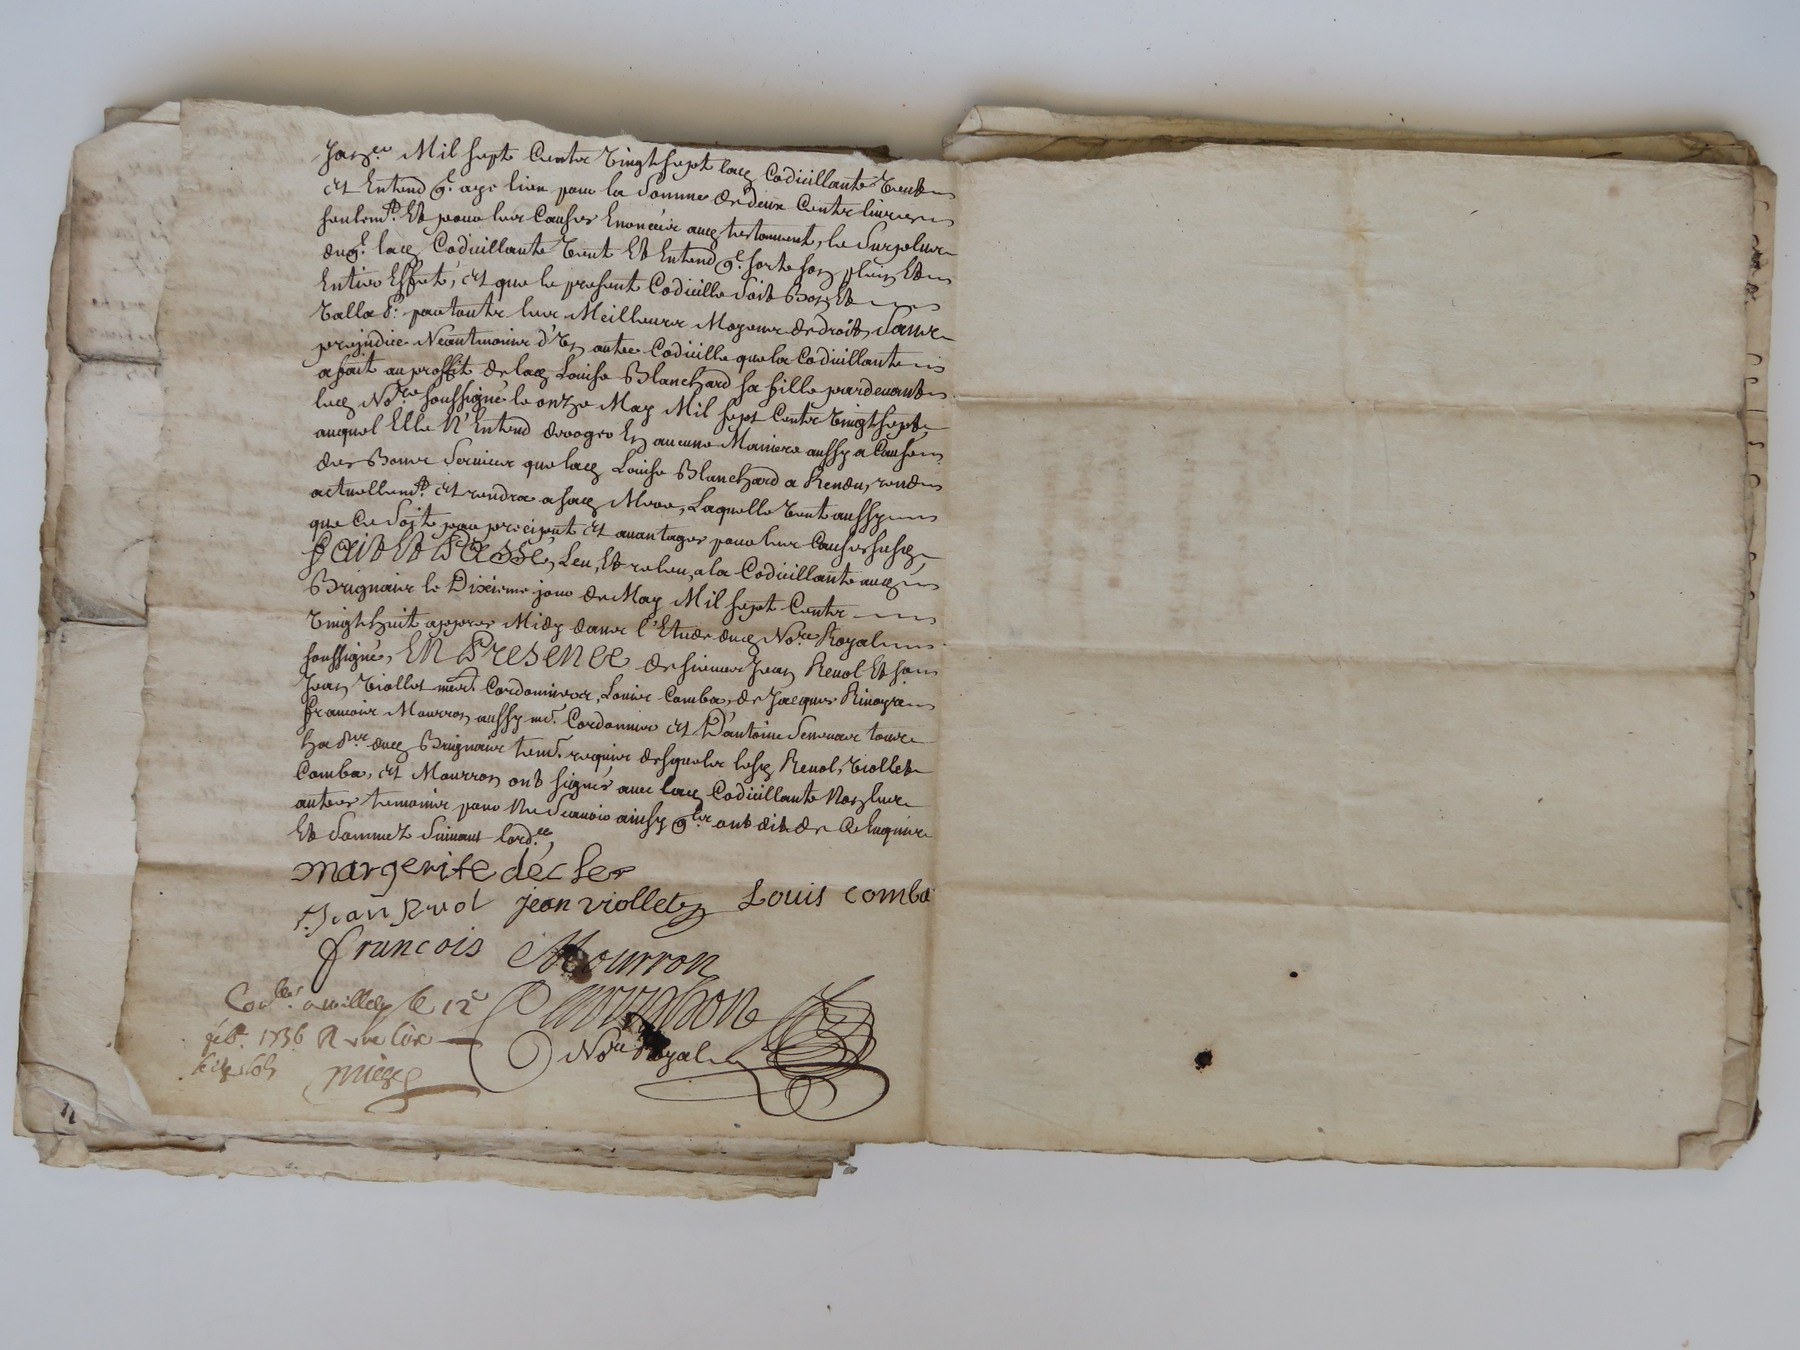 Janer Mil sept Cents vingt sept lad Codicillante veut
et Entend q. aye lieu pour la Somme de deux Cents livres
seulemt. Et pour les Causes Enoncées aud testament, le Surplus
duql. lad Codicillante veut Et Entend q. sorte son plein Et
Entier Effet, et que le present Codicille Soit Bon Et
Valla par toutes les Meilleures Moyens de droit, Sans
prejudice Neantmoins d'Un autre Codicille que la Codicillante
a fait au proffit de lad Louise Blanchard sa fille pardevant
led Nore soussigné le onze May Mil sept Cents vingt sept
auquel Elle N'Entend deroger En aucune Maniere aussy a Cause
des Bons Services que lad Louise Blanchard a Rendu, rend
actuellemt. et rendra a sad Mere, Laquelle veut aussy
que Ce Soit par preciput et avantages pour les Causes susd
Fait Et Passé, Leu, Et releu, a la Codicillante aud
Brignais le Dixieme jour de May Mil sept Cents
vingt huit appres Midy dans l'Etude dud Nore Royal
soussigné, En Presence de sieurs Jean Revol Et
Jean Viollet md. Cordonniers, Louis Comba, de Jacques
francois Mourron aussy md. Cordonnier et D'antoine tous
dud Brignais tem. requis desquels lesd Revol, Viollet
Comba, et Mourron ont signés avec lad Codicillante Non les
autres temoins pour Ne Scavoir ainsy qls ont dit de Ce Enquis
Et Sommez Suivant lord.ce
margerite décher
Jean Rvol jean viollet Louis comba
francois Mourron
Conlé a millery le 12e
feb. 1736 R une livre
Nore Royal